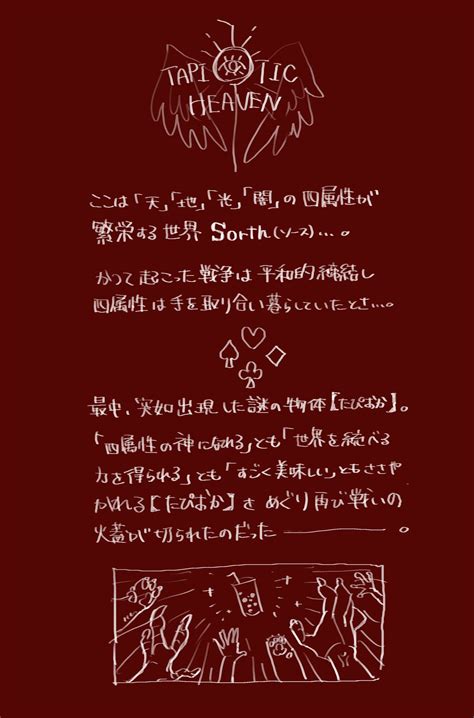 TAPIOTIC
HEAVEN
ここは「天」「地」「光」「闇」の四属性が
繁栄する世界 Sorth(ソース)…。
かつて起こった戦争は平和的締結し
四属性は手を取り合い暮らしていたとさ…。
最中、突如出現した謎の物体【たぴおか】。
「四属性の神になれる」とも「世界を統べる
力を得られる」とも「すごく美味しい」ともささや
かれる【たぴおか】をめぐり再び戦いの
火蓋が切られたのだった――――。